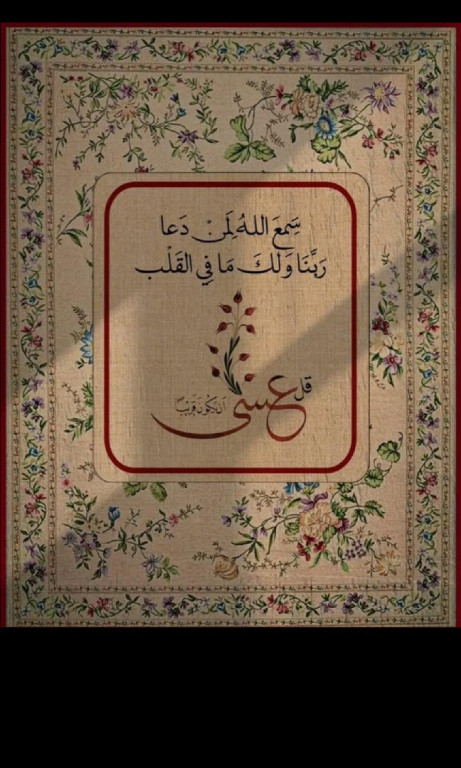 سَمِعَ اللهُ لِمَنْ دَعا
رَبَّنَا وَلَكَ مَا فِي القَلْب
قل عسى
ان يكون قريباً